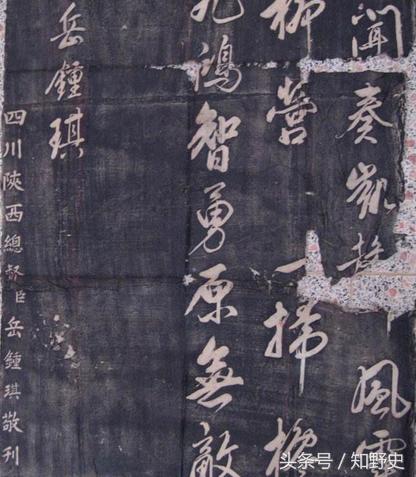 聞奏凱風雲
柳營一掃
鴻智勇原無敵
岳鍾琪
四川陝西總督臣岳鍾琪敬刊
头条号 / 知野史